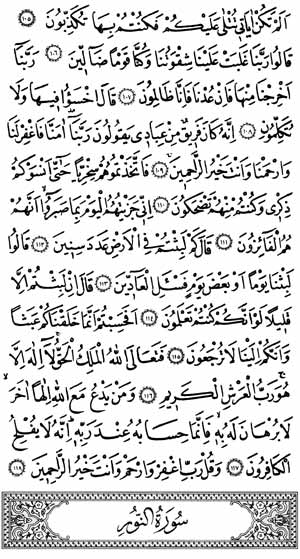 اَلَمْ تَكُنْ اٰيَات۪ي تُتْلٰى عَلَيْكُمْ فَكُنْتُمْ بِهَا تُكَذِّبُونَ ﴿١٠٥﴾
قَالُوا رَبَّنَا غَلَبَتْ عَلَيْنَا شِقْوَتُنَا وَكُنَّا قَوْمًا ضَٓالّ۪ينَ ﴿١٠٦﴾ رَبَّنَٓا
اَخْرِجْنَا مِنْهَا فَاِنْ عُدْنَا فَاِنَّا ظَالِمُونَ ﴿١٠٧﴾ قَالَ اخْسَؤُ۫ا ف۪يهَا وَلَا
تُكَلِّمُونِ ﴿١٠٨﴾ اِنَّهُ كَانَ فَر۪يقٌ مِنْ عِبَاد۪ي يَقُولُونَ رَبَّنَٓا اٰمَنَّا فَاغْفِرْ لَنَا
وَارْحَمْنَا وَاَنْتَ خَيْرُ الرَّاحِم۪ينَ ﴿١٠٩﴾ فَاتَّخَذْتُمُوهُمْ سِخْرِيًّا حَتّٰٓى اَنْسَوْكُمْ
ذِكْر۪ي وَكُنْتُمْ مِنْهُمْ تَضْحَكُونَ ﴿١١٠﴾ اِنّ۪ي جَزَيْتُهُمُ الْيَوْمَ بِمَا صَبَرُٓواۙ اَنَّهُمْ
هُمُ الْفَٓائِزُونَ ﴿١١١﴾ قَالَ كَمْ لَبِثْتُمْ فِي الْاَرْضِ عَدَدَ سِن۪ينَ ﴿١١٢﴾ قَالُوا
لَبِثْنَا يَوْمًا اَوْ بَعْضَ يَوْمٍ فَسْـَٔلِ الْعَٓادّ۪ينَ ﴿١١٣﴾ قَالَ اِنْ لَبِثْتُمْ اِلَّا
قَل۪يلًا لَوْ اَنَّكُمْ كُنْتُمْ تَعْلَمُونَ ﴿١١٤﴾ اَفَحَسِبْتُمْ اَنَّمَا خَلَقْنَاكُمْ عَبَثًا
وَاَنَّكُمْ اِلَيْنَا لَا تُرْجَعُونَ ﴿١١٥﴾ فَتَعَالَى اللّٰهُ الْمَلِكُ الْحَقُّۚ لَٓا اِلٰهَ اِلَّا
هُوَۚ رَبُّ الْعَرْشِ الْكَر۪يمِ ﴿١١٦﴾ وَمَنْ يَدْعُ مَعَ اللّٰهِ اِلٰهًا اٰخَرَۙ
لَا بُرْهَانَ لَهُ بِه۪ۙ فَاِنَّمَا حِسَابُهُ عِنْدَ رَبِّه۪ۜ اِنَّهُ لَا يُفْلِحُ
الْكَافِرُونَ ﴿١١٧﴾ وَقُلْ رَبِّ اغْفِرْ وَارْحَمْ وَاَنْتَ خَيْرُ الرَّاحِم۪ينَ ﴿١١٨﴾
سُورَةُ النُّورِ